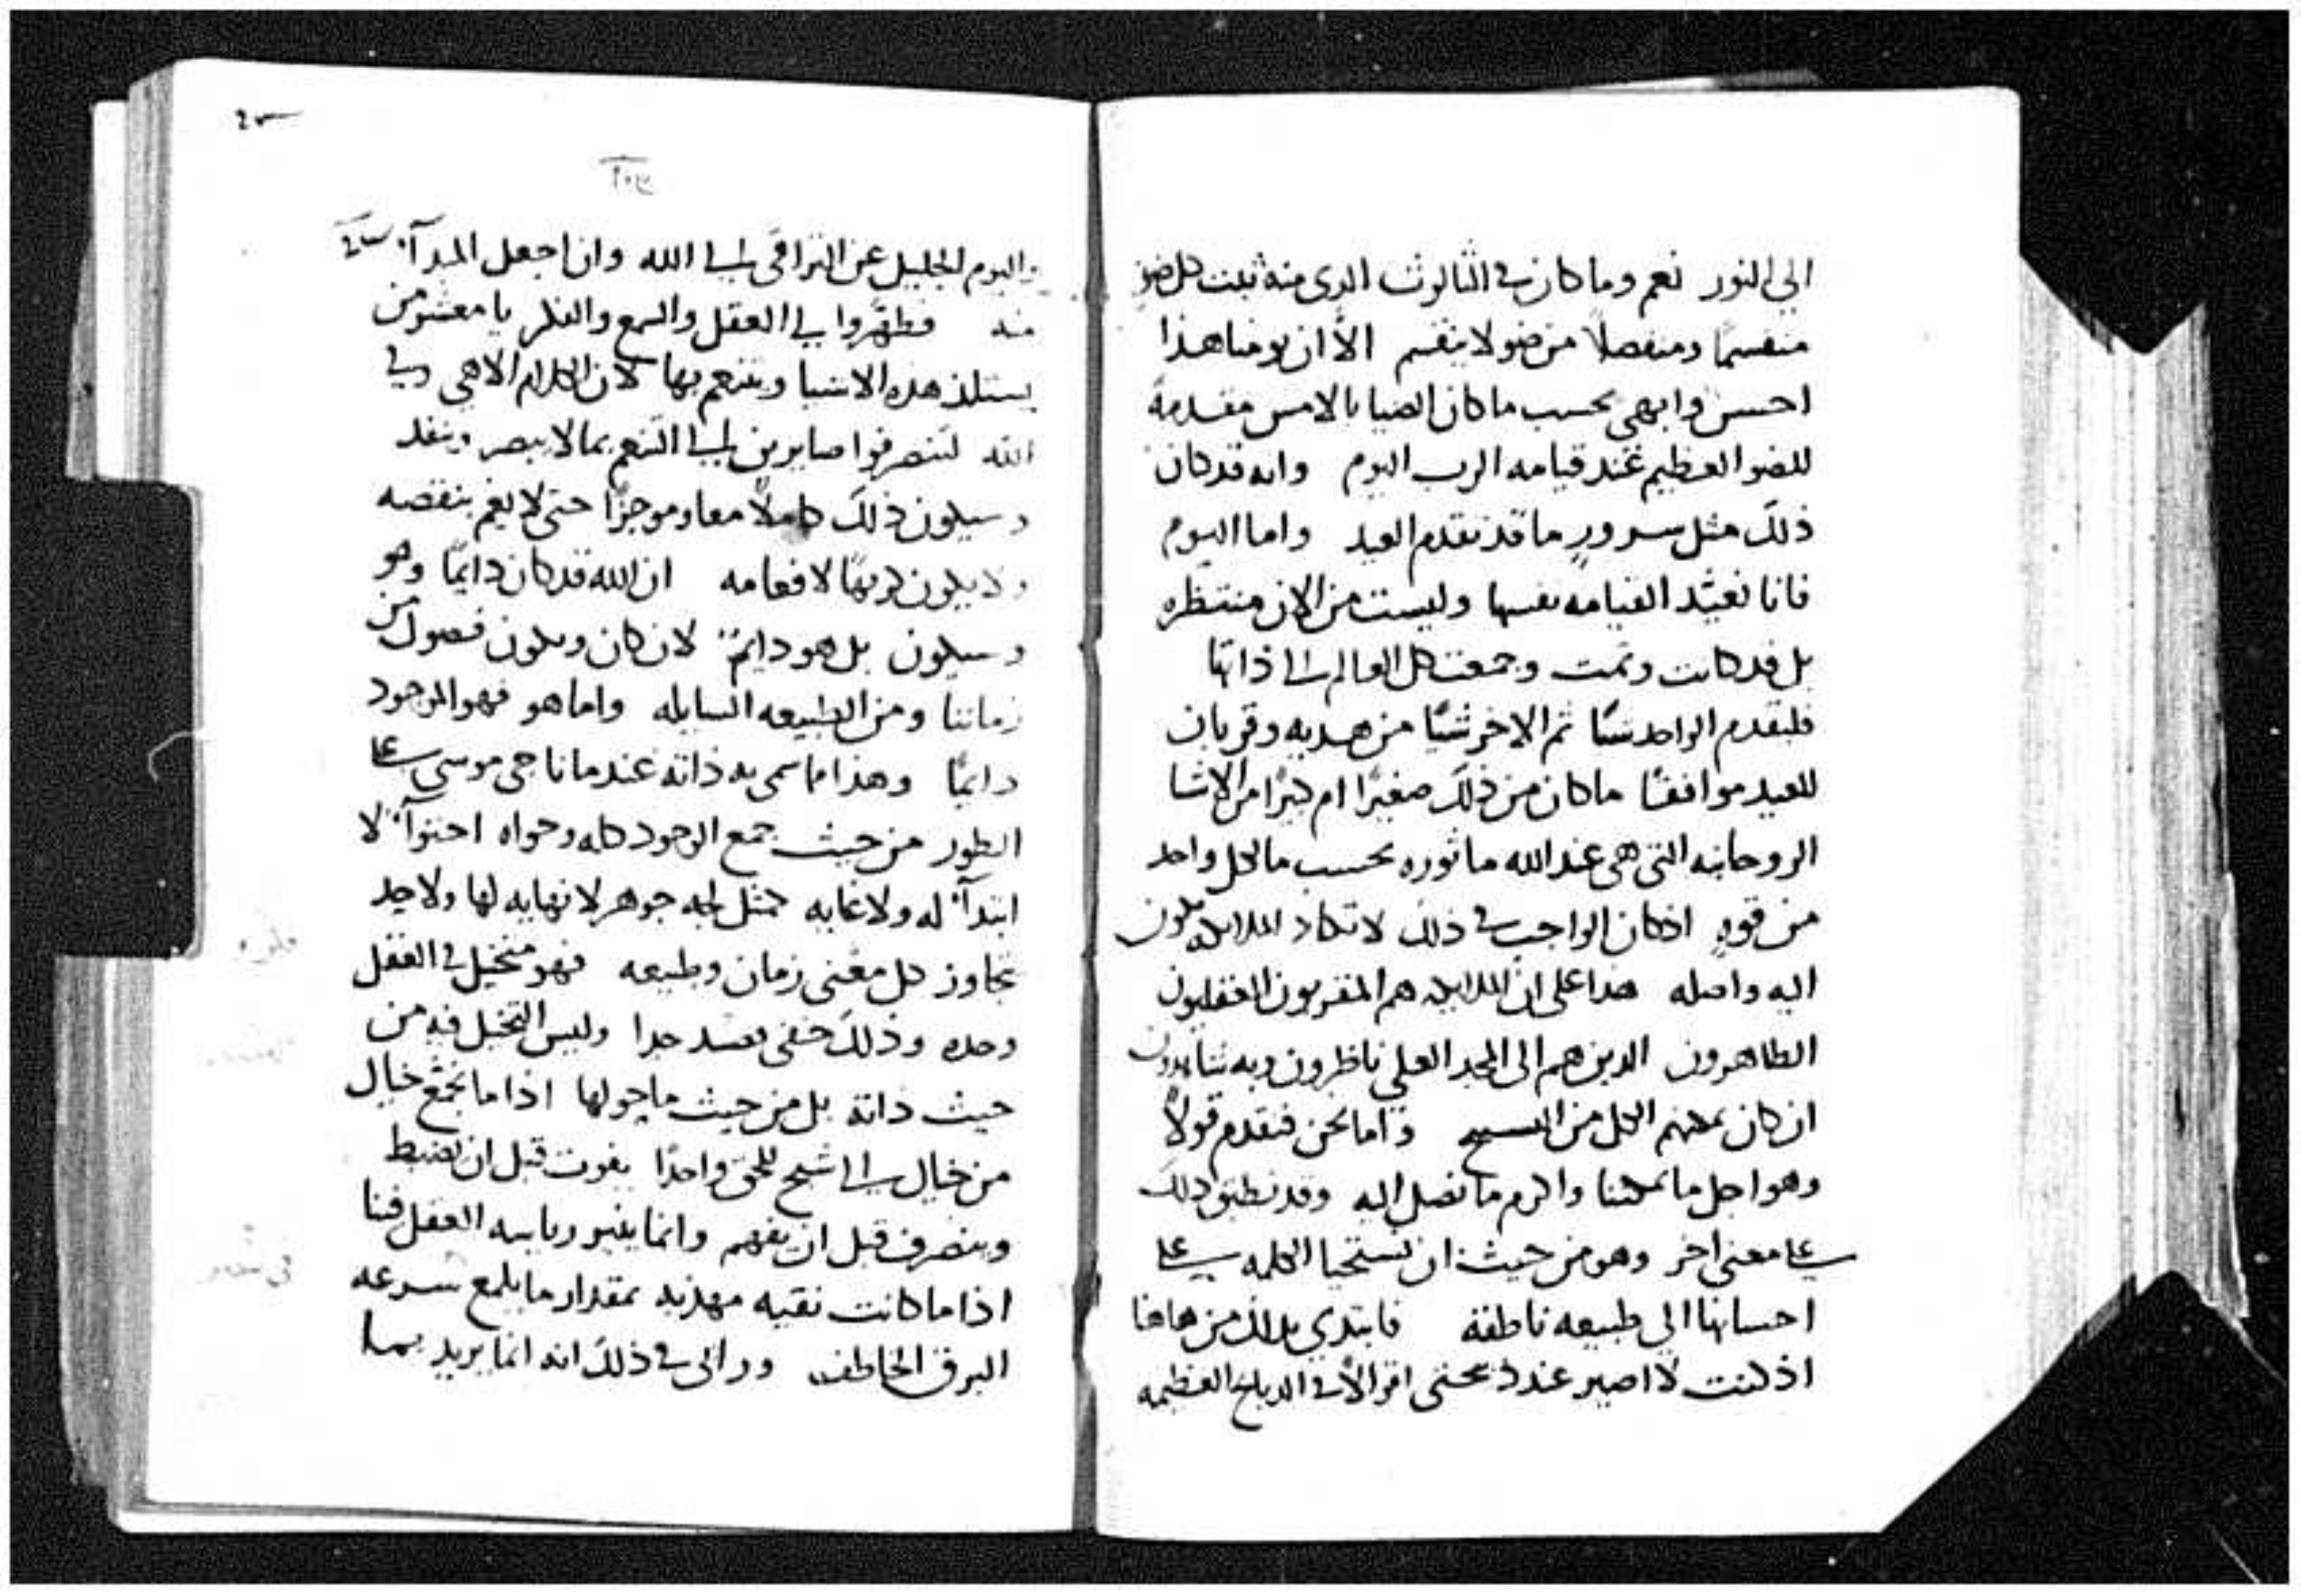 الي النور نعم وما كان في الثالوث الدى منه ثبت كل ضو
منقسمًا ومنفصلاً من ضو لا ينقسم الاّ ان يومنا هذا
احسن وابهى بحسب ما كان الضيا بالامس مقدمةً
للضو العظيم عند قيامه الرب اليوم وانه قد كان
ذلك مثل سرورٍ ما قد تقدم العيد واما اليوم
فانا نعيّد القيامه نفسها وليست من الان منتظره
بل قد كانت وتمت وجمعت كل العالم الى ذاتها
فليقدم الواحد شيًا ثم الاخر شيًا من هديه وقربان
للعيد موافقًا ما كان من ذلك صغيرًا ام كبيرًا من الاشيا
الروحانيه التى هى عند الله ماثوره بحسب ما لكل واحد
من قوهٍ اذ كان الواجب في ذلك لا تكاد الملايكه تكون
اليه واصله هدا على ان الملايكه هم المقربون العقليون
الطاهرون الدين هم الى المجد العلي ناظرون وبه شاهدون
ان كان يمكنهم الكل من التسبيح واما نحن فنقدم قولاً
وهو اجل ما يمكننا واكرم ما نصل اليه وقد نطبق ذلك
على معنى اخر وهو من حيث ان نستحيا الكلمه على
احسانها الي طبيعه ناطقة فابتدي بدلك من هاهنا
اذ كنت لا اصير عند ذبحتى اقوالاً في الدبايح العظيمه
٢٠٣
واليوم الجليل عن التراقى الى الله وان اجعل المبدآ
منه فطهّروا لي العقل والسمع والفكر يا معشر من
يستلذ هذه الاشيا ويتنعم بها لان الكلام الاهي وفي
الله لتنصرفوا صابرين الى التنعم بما لا يبصر وينفد
وسيكون ذلك كاملاً معا وموجزًا حتى لا يغم بنقصه
ولا يكون كريهًا لافعامه ان الله قد كان دايمًا وهو
وسيكون بل هو دايم لان كان ويكون فصول من
زماننا ومن الطبيعه السايله واما هو فهو الموجود
دايمًا وهذا ما سمى به ذاته عند ما ناجى موسى على
الطور من حيث جمع الوجود كله وحواه احتوآ لا
ابتدآ له ولا غايه كمثل لجه جوهر لا نهايه لها ولا حد
تجاوز كل معنى زمان وطبيعه فهو متخيل في العقل
وحده وذلك خفى جدا وليس التخيل فيه من
حيث داته بل من حيث ما حولها اذا ما تجمّع خيال
من خيال الى شبح للحق واحدًا يفوت قبل ان يضبط
وينصرف قبل ان يفهم وانما ينير رياسه العقل فينا
اذا ما كانت نقيه مهذبه بمقدار ما يلمع سرعه
البرق الخاطف ورايى في ذلك انه انما يريد بهدا